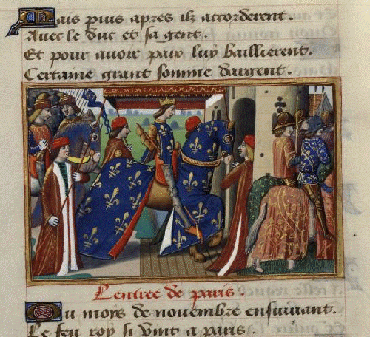 Mais puis apres ilz accorderent.
Avec le duc et sa gent.
Et pour avoir paix luy baillerent.
Certaine grant somme dargent.
Lentree de paris.
Ou moys de novembre ensuivant.
Le feu roy si vint a paris.